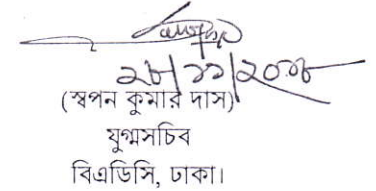 ২৮/১১/২০০৮
(স্বপন কুমার দাস)
যুগ্মসচিব
বিএডিসি, ঢাকা।